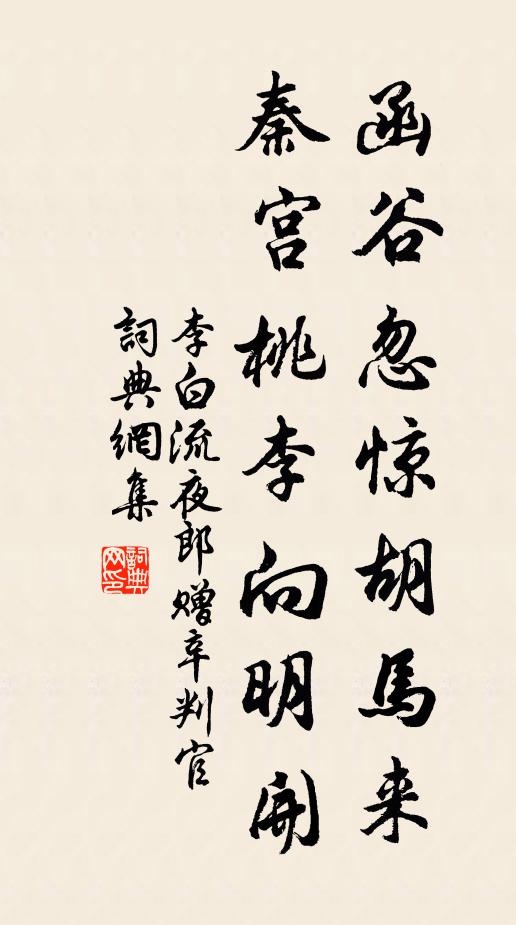 函谷忽惊胡馬来
秦宫桃李向明開
李白流夜郎赠辛判官
詞典網集
詞典網印